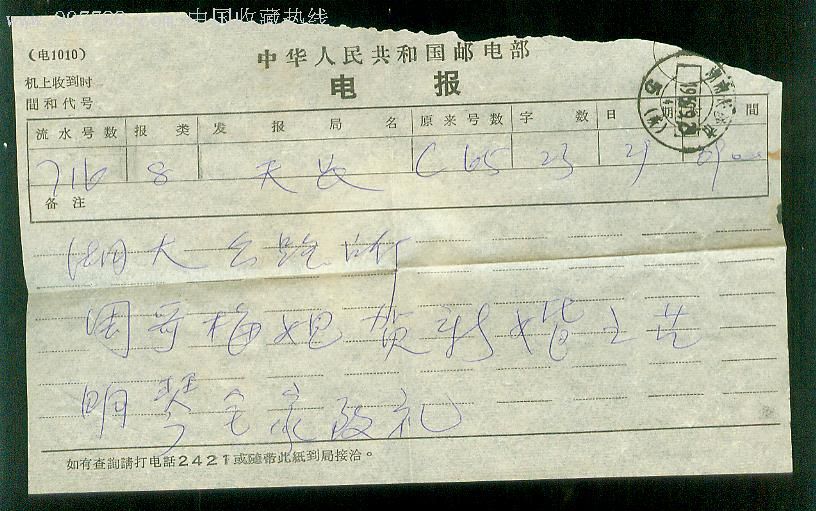 中国收藏热线
中华人民共和国邮电部
(电1010)
电 报
机上收到时
間和代号
流水号数 报类 发报局名 原来号数 字数 日期 間
716 8 天 C 65 23 29 0900
备注
湖大公路所
周哥梅姐贺新婚之
明琴全家致礼
如有查詢請打电話2421或隨带此紙到局接洽。